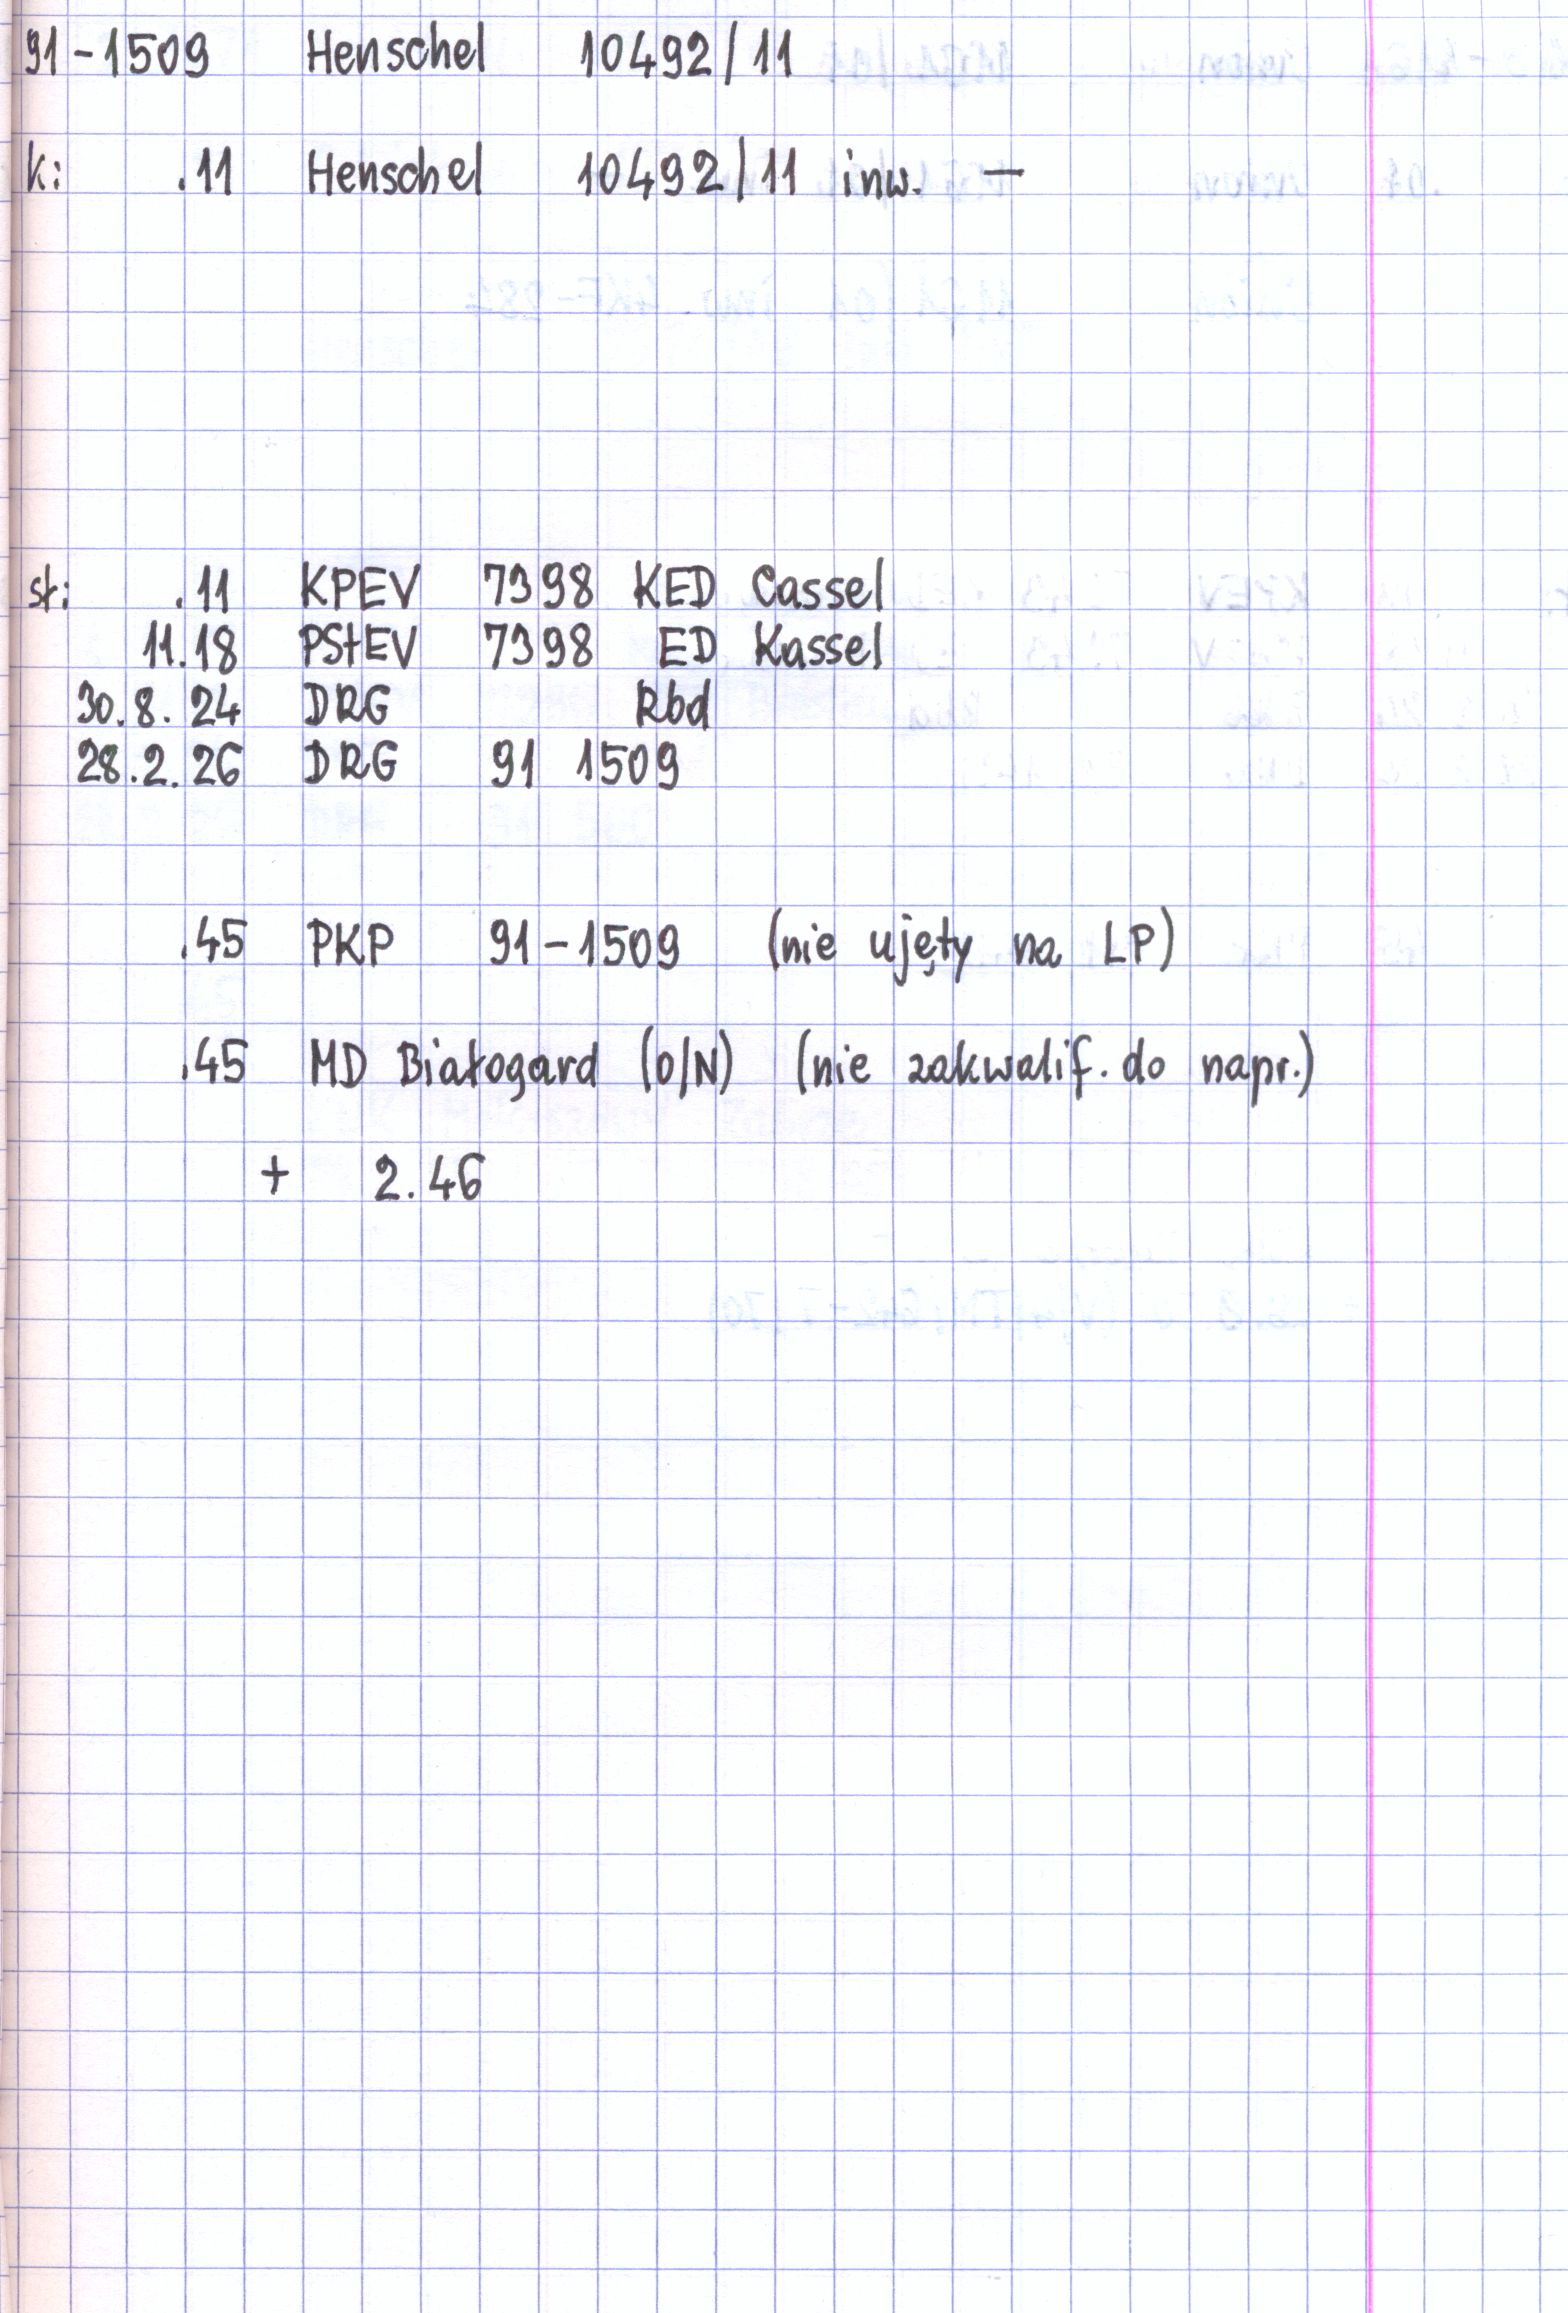 91-1509 Henschel 10492/11
k: .11 Henschel 10492/11 inw. —
st: .11 KPEV 7398 KED Cassel
11.18 PStEV 7398 ED Kassel
30.8.24 DRG Rbd
28.2.26 DRG 91 1509
.45 PKP 91-1509 (nie ujęty na LP)
.45 MD Białogard (O/N) (nie zakwalif. do napr.)
+ 2.46